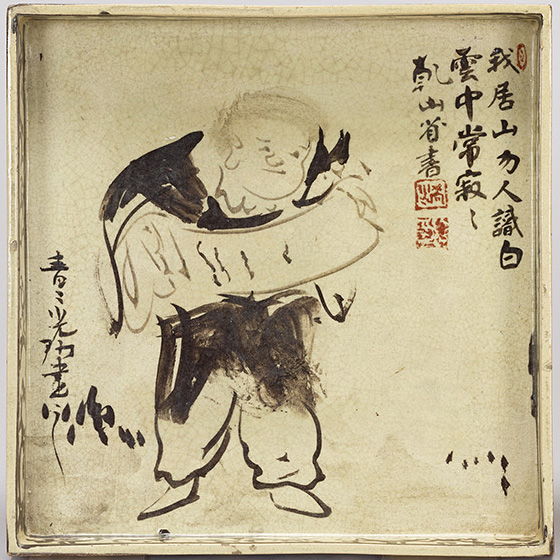 我居山勿人識白
雲中常寂〻
乾山省書
青〻光琳畫